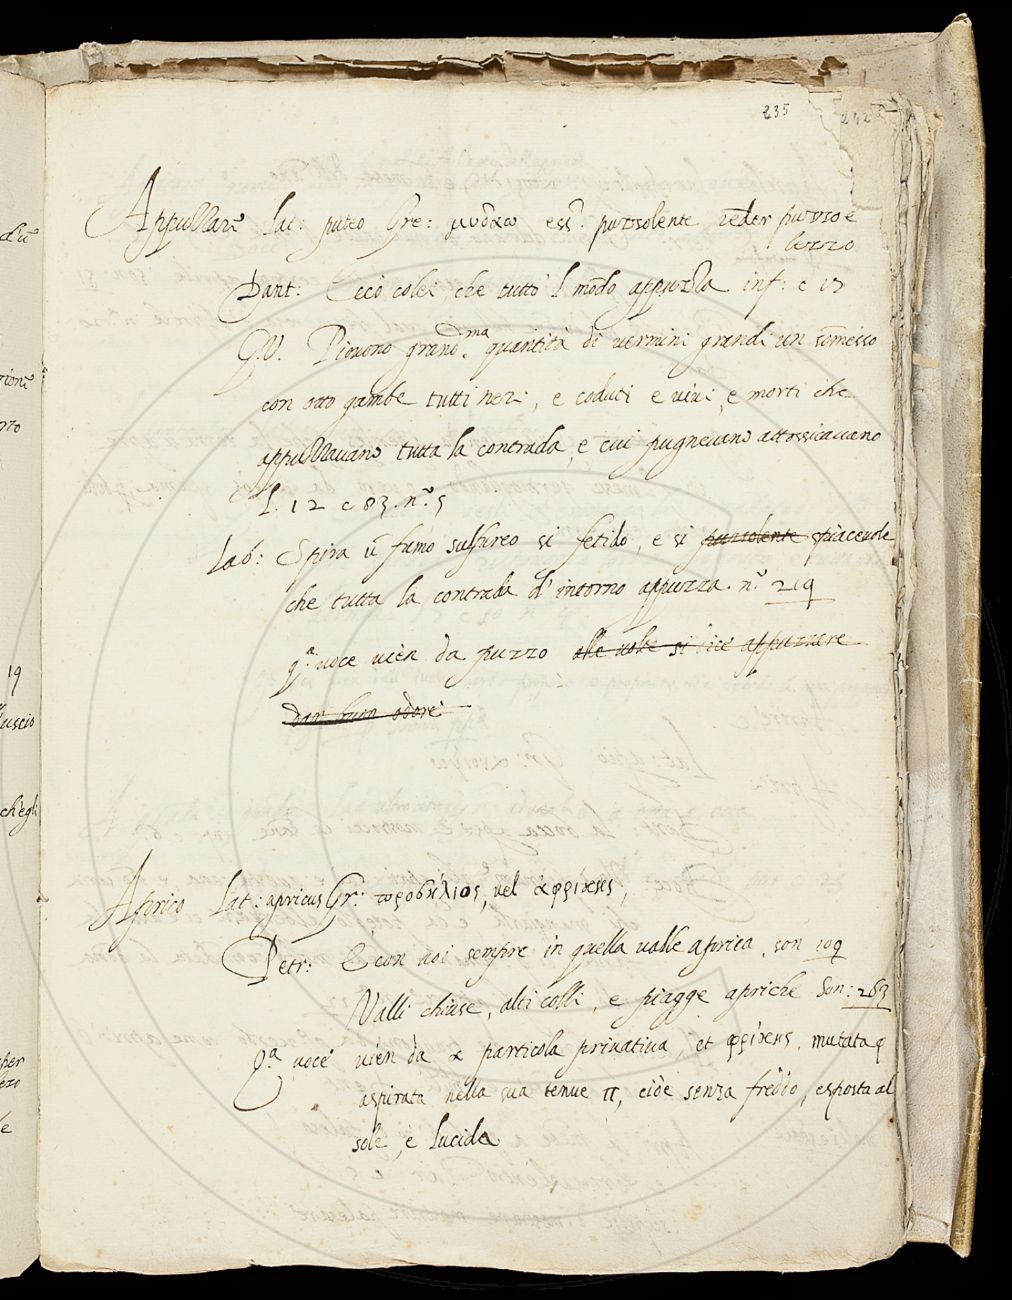 235
242
Appuzzare Lat: puteo Gre: μυδαω ess. puzzolente render puzzo e
lezzo
Dant: Ecco colei, che tutto l mondo appuzza inf: c 17
G.V. Piovono grand.ma quantità di vermini grandi un somesso
con otto gambe tutti neri, e coduti e vivi, e morti che
appuzzavano tutta la contrada, e cui pugnevano attossicavano
l. 12 c 83. n.o 5
Lab: Spira un fumo sulfureo si fetido, e si puzzolente spiacevole
che tutta la contrada d'intorno appuzza. n.o 219
q.a voce vien da puzzo alle volte si dice appuzzare
dar buon odore
Aprico Lat: apricus Gr: προσήλιος, vel ἀφρικης,
Petr: E con noi sempre in quella valle aprica, son 109
Valli chiuse, alti colli, e piagge apriche Son: 263
Q.a voce vien da α particola privativa, et φρίκης, mutata φ
aspirata nella sua tenue π, cioè senza freddo, esposta al
sole, e lucida
19
ch'egli